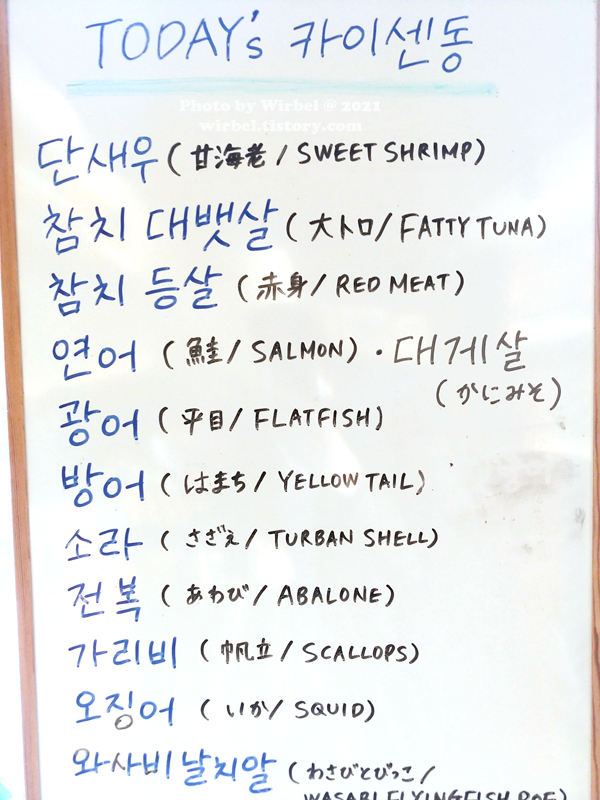 TODAY's 카이센동
Photo by Wirbel @ 2021
wirbel.tistory.com
단새우 (甘海老 / SWEET SHRIMP)
참치 대뱃살 (大トロ / FATTY TUNA)
참치 등살 (赤身 / RED MEAT)
연어 (鮭 / SALMON) · 대게살
(かにみそ)
광어 (平目 / FLATFISH)
방어 (はまち / YELLOW TAIL)
소라 (さざえ / TURBAN SHELL)
전복 (あわび / ABALONE)
가리비 (帆立 / SCALLOPS)
오징어 (いか / SQUID)
와사비날치알 (わさびとびっこ /
WASABI FLYINGFISH ROE)